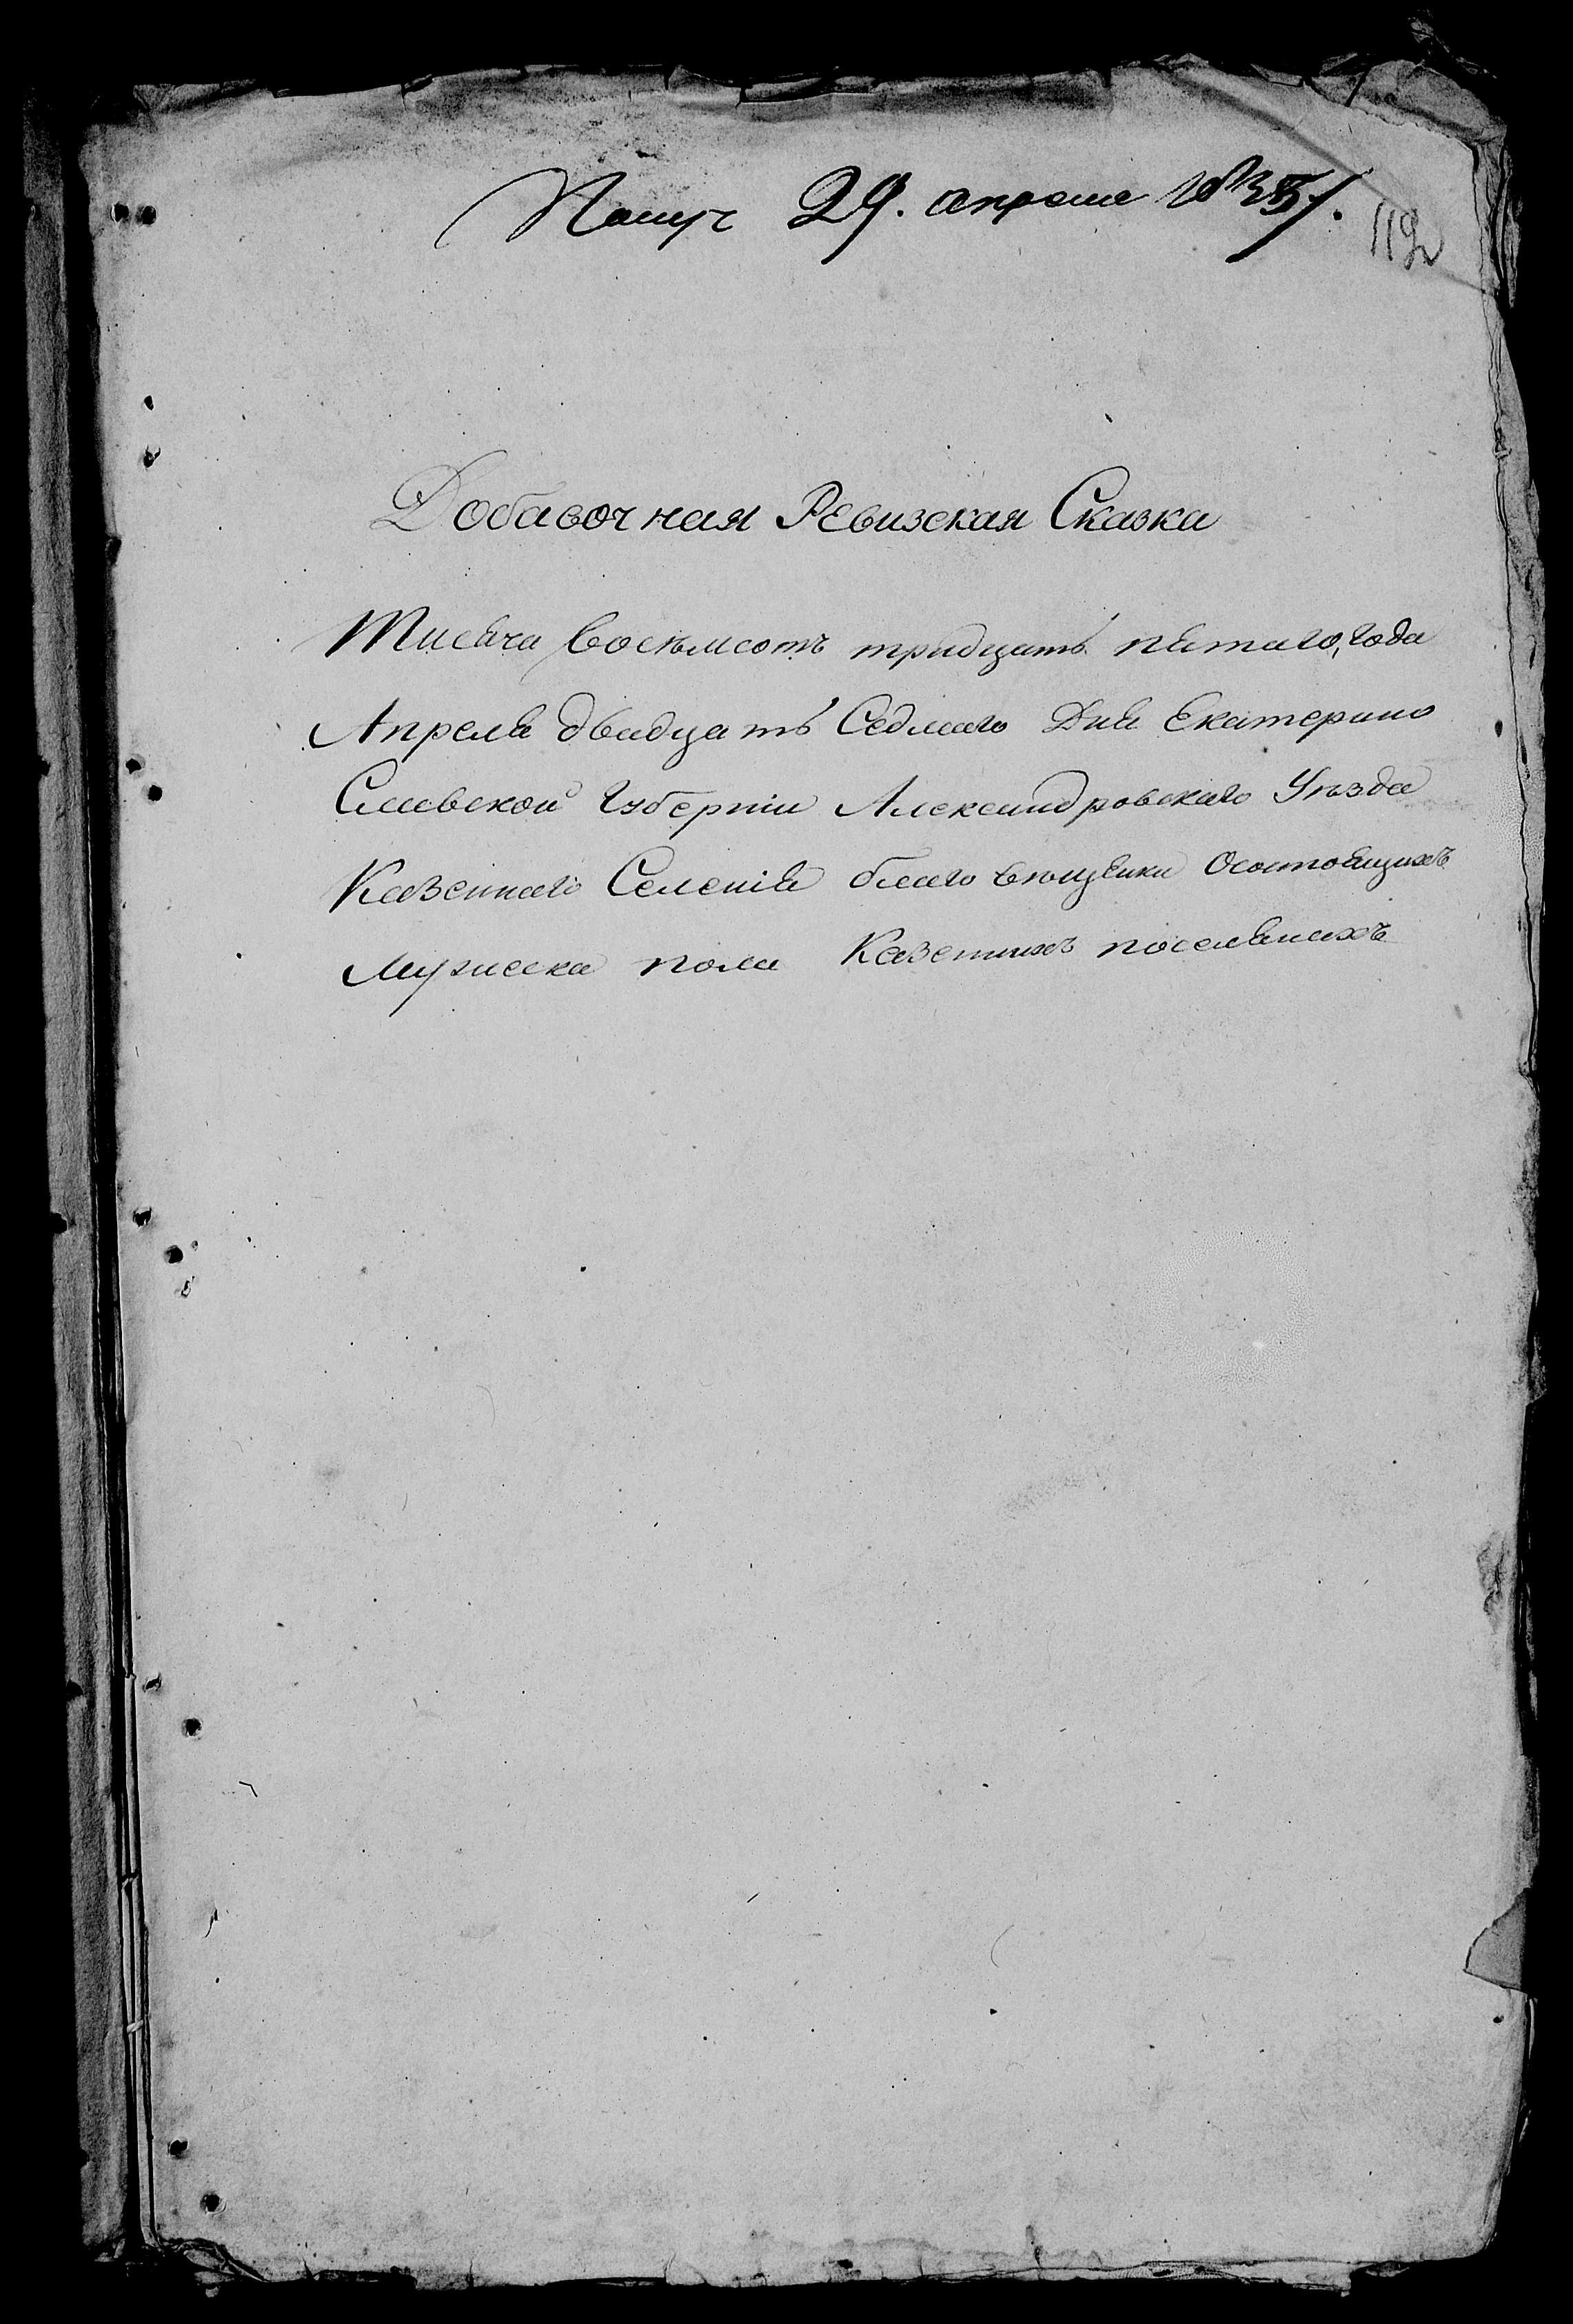 Получ 29. апреля 1835/.
112
Добавочная Ревизская Сказка
Тисяча восемьсотъ тридцать пятаго, года
Апреля двадцать Седмаго Дня Екатерино
Славской Губерніи Александровскаго Уѣзда
Казеннаго Селенія благо вѣщенки Осостоящихъ
Мужеска пола Казенныхъ поселянахъ